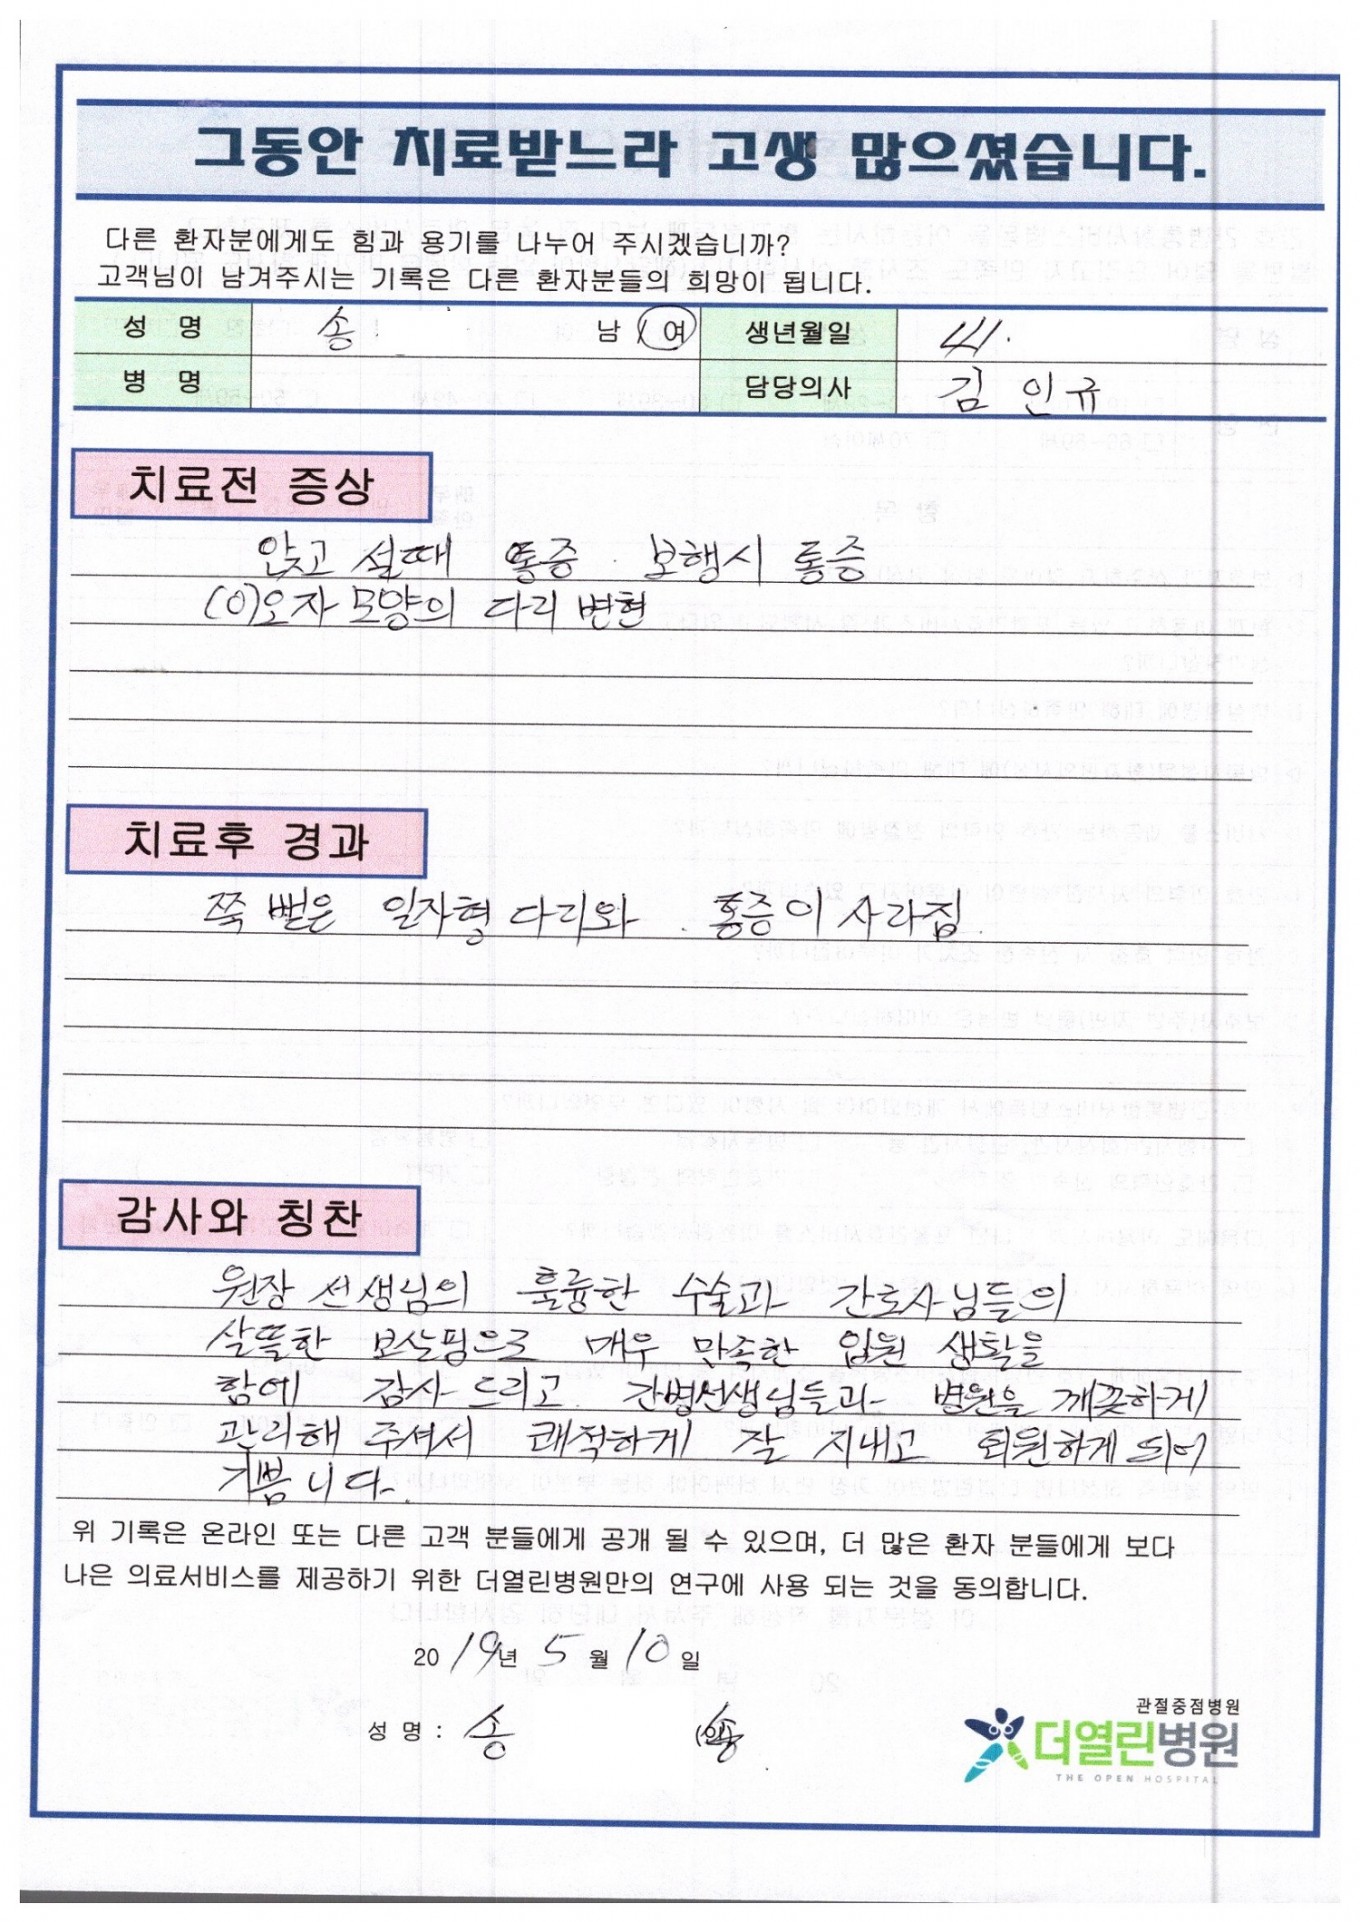 그동안 치료받느라 고생 많으셨습니다.
다른 환자분에게도 힘과 용기를 나누어 주시겠습니까?
고객님이 남겨주시는 기록은 다른 환자분들의 희망이 됩니다.
성 명 송 남 / 여 생년월일
병 명 담당의사 김인규
치료전 증상
앉고 설때 통증. 보행시 통증
(O)오자 모양의 다리 변현
치료후 경과
쭉 뻗은 일자형 다리와 통증이 사라짐.
감사와 칭찬
원장 선생님의 훌륭한 수술과 간호사님들의
살뜰한 보살핌으로 매우 만족한 입원 생활을
함에 감사 드리고. 간병선생님들과 병원을 깨끗하게
관리해 주셔서 쾌적하게 잘 지내고 퇴원하게 되어
기쁩니다.
위 기록은 온라인 또는 다른 고객 분들에게 공개 될 수 있으며, 더 많은 환자 분들에게 보다
나은 의료서비스를 제공하기 위한 더열린병원만의 연구에 사용 되는 것을 동의합니다.
2019년 5월 10일
성 명 : 송
관절중점병원
더열린병원
THE OPEN HOSPITAL